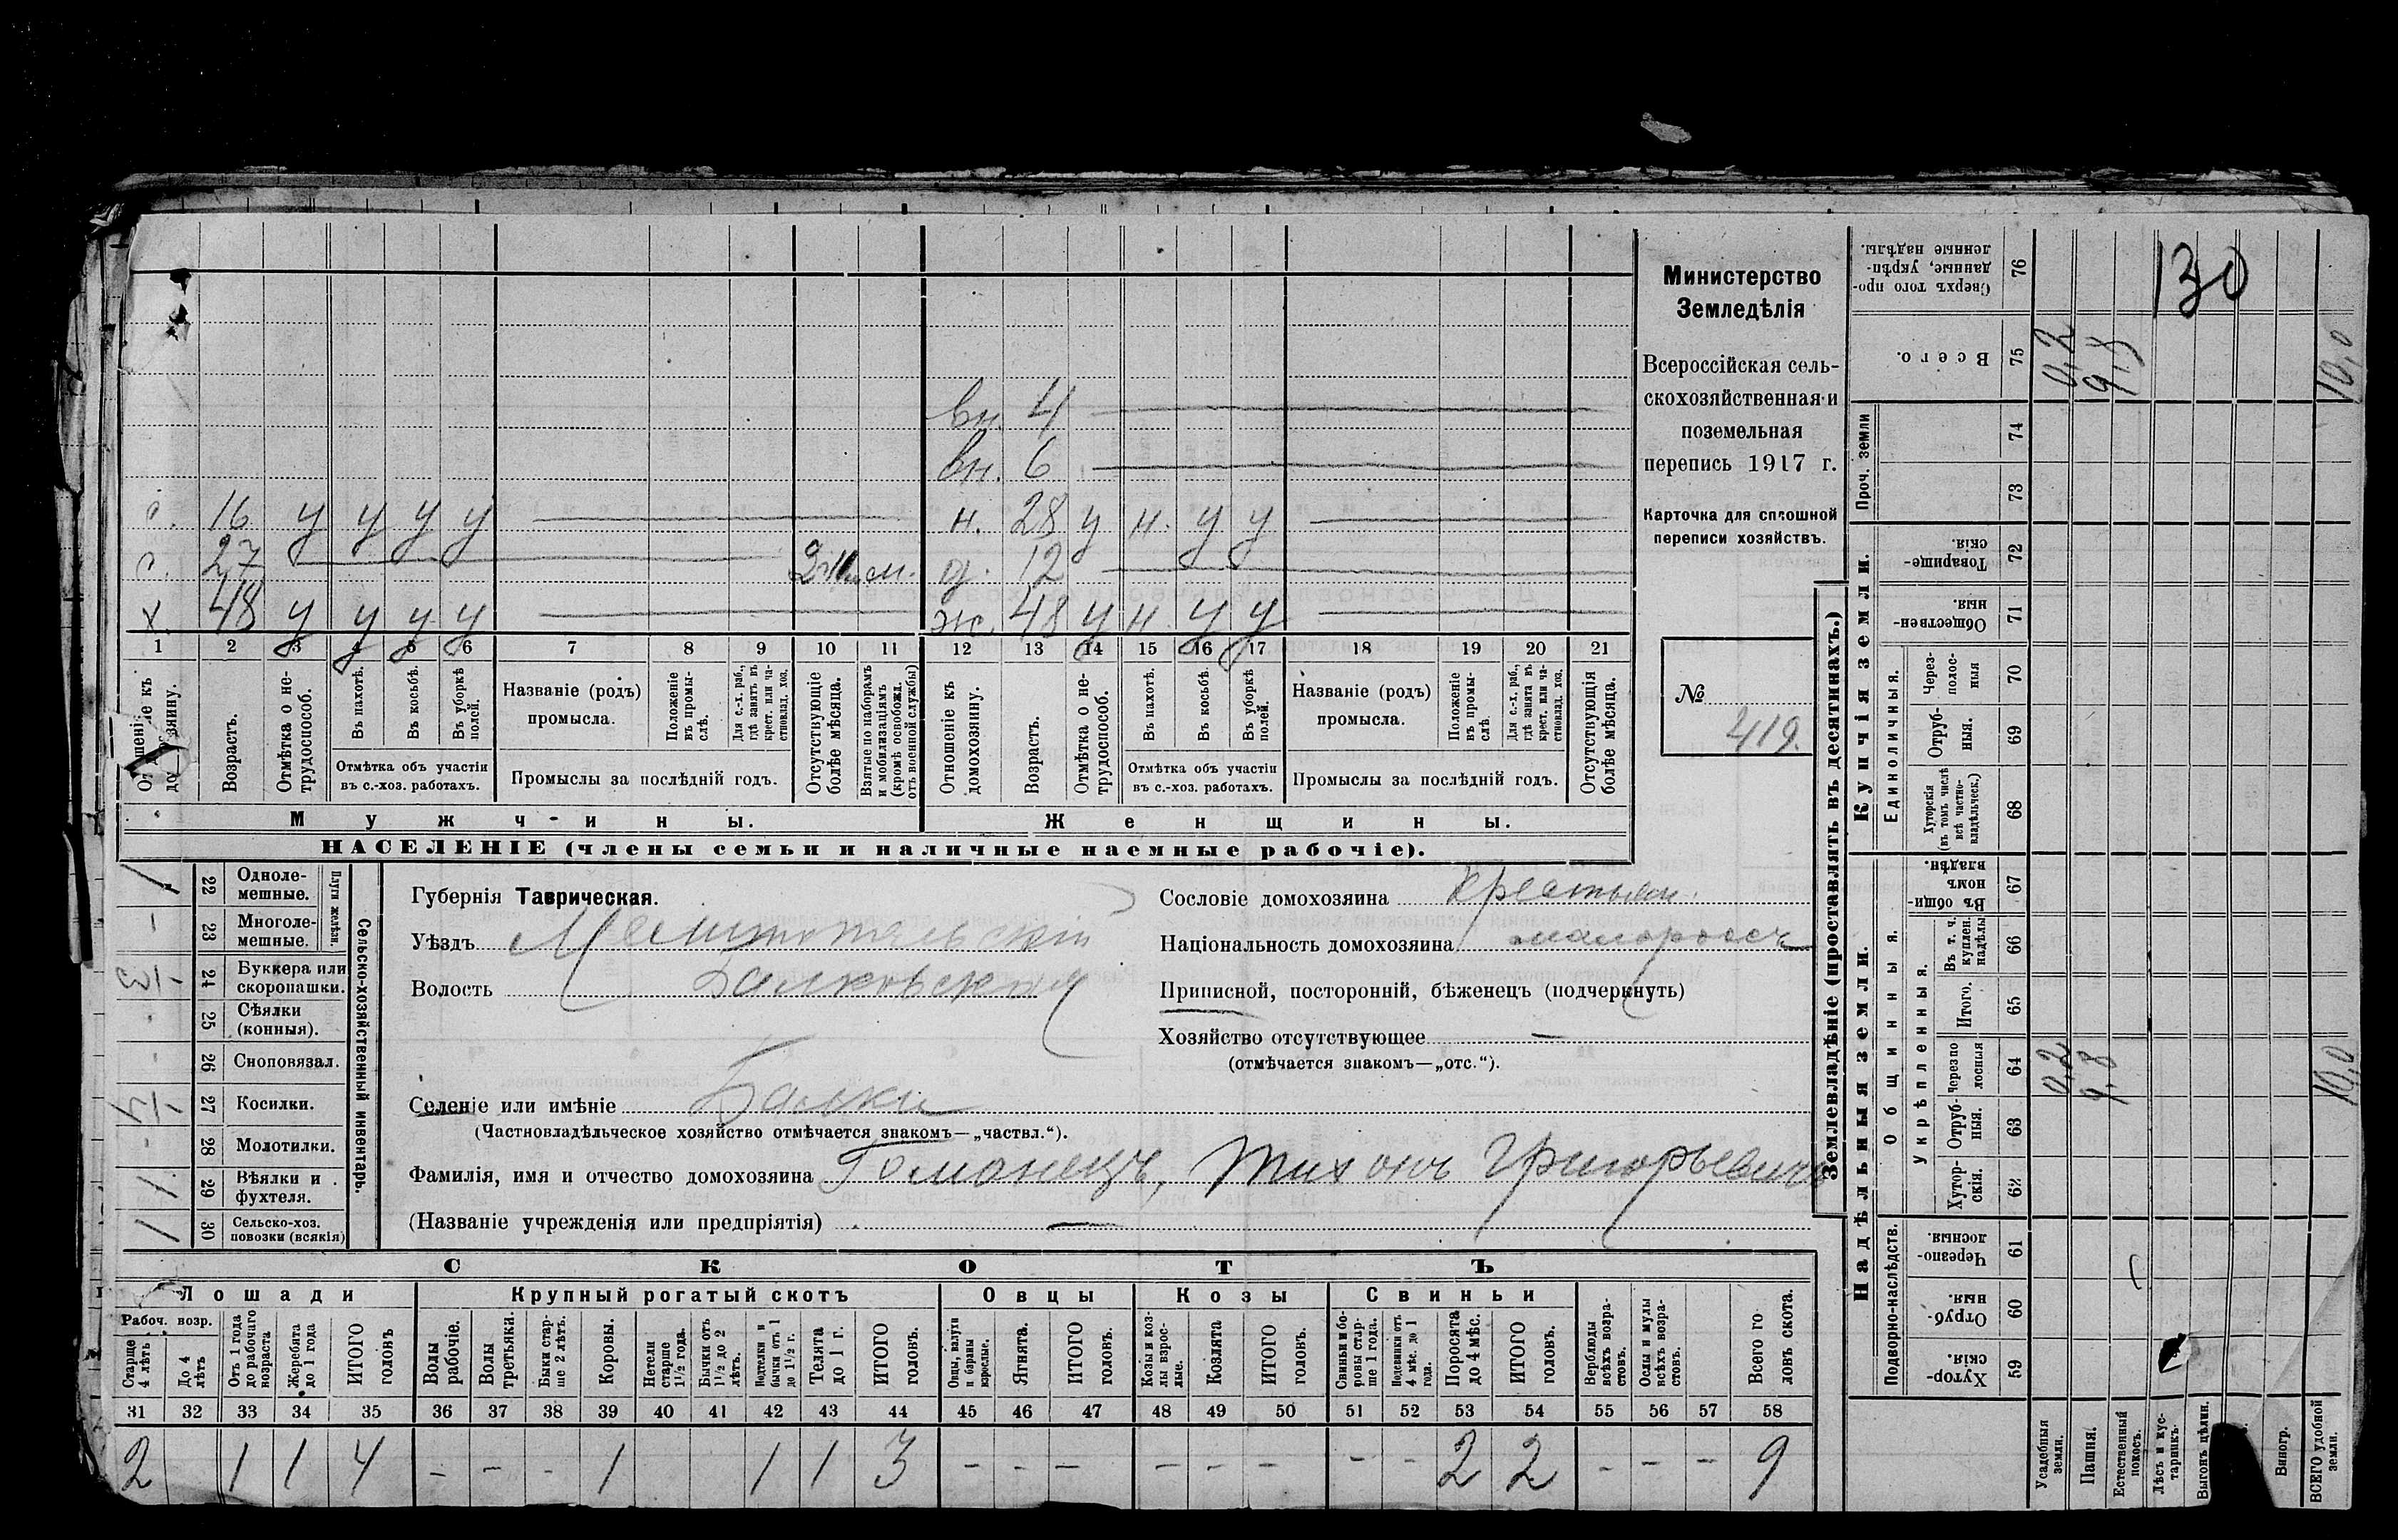 130
Министерство
Земледѣлія
Всероссійская сель-
скохозяйственная и
поземельная
перепись 1917 г.
Карточка для сплошной
переписи хозяйствъ.
№
419.
вн. 4
вн. 6
с. 16 у у у у
н. 28 у н. у у
с. 27
д. 12
х. 48 у у у у
ж. 48 у н. у у
1 2 3 4 5 6 7 8 9 10 11 12 13 14 15 16 17 18 19 20 21
домохозяину.
Возрастъ.
Отмѣтка о не-
трудоспособ.
Въ пахотѣ.
Въ косьбѣ.
Въ уборкѣ
полей.
Отмѣтка объ участіи
въ с.-хоз. работахъ.
Названіе (родъ)
промысла.
Положеніе
въ промы-
слѣ.
Для с.-х. раб.,
гдѣ занятъ въ
крест. или ча-
стновлад. хоз.
Промыслы за послѣдній годъ.
Отсутствующіе
болѣе мѣсяца.
Взятые по наборамъ
и мобилизаціямъ
(кромѣ освобожд.
отъ военной службы)
Отношеніе къ
домохозяину.
Возрастъ.
Отмѣтка о не-
трудоспособ.
Въ пахотѣ.
Въ косьбѣ
Въ уборкѣ
полей.
Отмѣтка объ участіи
въ с.-хоз. работахъ.
Названіе (родъ)
промысла.
Положеніе
въ промы-
слѣ.
Для с.-х. раб.,
гдѣ занята въ
крест. или ча-
стновлад. хоз.
Промыслы за послѣдній годъ.
Отсутствующія
болѣе мѣсяца.
Мужчины.
Женщины.
НАСЕЛЕНІЕ (члены семьи и наличные наемные рабочіе).
Сельско-хозяйственный инвентарь.
Плуги желѣзн.
22 Однолe-
мешные.
1
23 Многоле-
мешные.
-
24 Буккера или
скоропашки.
1/3
25 Сѣялки
(конныя).
26 Сноповязал.
27 Косилки.
1/4
28 Молотилки.
29 Вѣялки и
фухтеля.
1
30 Сельско-хоз.
повозки (всякія)
1
Губернія Таврическая.
Уѣздъ Мелитопольскій
Волость Балковская
Селеніе или имѣніе Балки
(Частновладѣльческое хозяйство отмѣчается знакомъ—„частвл.“).
Фамилія, имя и отчество домохозяина Гоманецъ, Тихонъ Григорьевичъ
(Названіе учрежденія или предпріятія) —
Сословіе домохозяина крестьян.
Національность домохозяина малороссъ
Приписной, посторонній, бѣженецъ (подчеркнуть)
Хозяйство отсутствующее —
(отмѣчается знакомъ—„отс.“).
СКОТЪ
Лошади
Крупный рогатый скотъ
Овцы
Козы
Свиньи
Рабоч. возр.
Старше
4 лѣтъ
До 4
лѣтъ
Отъ 1 года
до рабочаго
возраста
Жеребята
до 1 года
ИТОГО
головъ
Волы
рабочіе.
Волы
третьяки.
Быки стар-
ше 2 лѣтъ.
Коровы.
Нетели
старше
1½ года.
Бычки отъ
1½ до 2
лѣтъ.
Подтелки и
бычки отъ 1
до 1½ г.
Телята
до 1 г.
ИТОГО
головъ.
Овцы, валухи
и бараны
взрослые.
Ягнята.
ИТОГО
головъ.
Козы и коз-
лы взрос-
лые.
Козлята
ИТОГО
головъ.
Свиньи и бо-
ровы стар-
ше 1 года.
Подсвинки отъ
4 мѣс. до 1
года.
Поросята
до 4 мѣс.
ИТОГО
головъ.
Верблюды
всѣхъ возра-
стовъ.
Ослы и мулы
всѣхъ возра-
стовъ.
Всего го
ловъ скота.
31 32 33 34 35 36 37 38 39 40 41 42 43 44 45 46 47 48 49 50 51 52 53 54 55 56 57 58
2 1 1 4 - - - 1 1 1 3 - - - - - - - - 2 2 - - - 9
Землевладѣніе (проставлять въ десятинахъ.)
Купчія земли.
Надѣльныя земли.
Сверхъ того про-
данные, укрѣп-
ленные надѣлы.
76
Всего.
75
0,2
9,8
10,0
Проч. земли
74
73
Товарище-
скія.
72
Обществен-
ныя.
71
Единоличныя.
Через-
полос-
ныя
70
Отруб-
ныя.
69
Хуторскія
(въ томъ числѣ
всѣ частно-
владѣльческ.)
68
Общинныя.
Въ общин-
номъ
владѣн.
67
укрѣпленныя.
Въ т. ч.
куплен.
надѣлы
66
Итого.
65
Черезпо
лосныя
64
0,2
9,8
10,0
Отруб-
ныя.
63
Хутор-
скія.
62
Подворно-наслѣдств.
Черезпо-
лосныя.
61
Отруб-
ныя.
60
Хутор-
скія.
59
Усадебныя
земли.
Пашня.
Естественный
покосъ.
Лѣсъ и кус-
тарникъ.
Выгонъ цѣлин.
Виногр.
ВСЕГО удобной
земли.